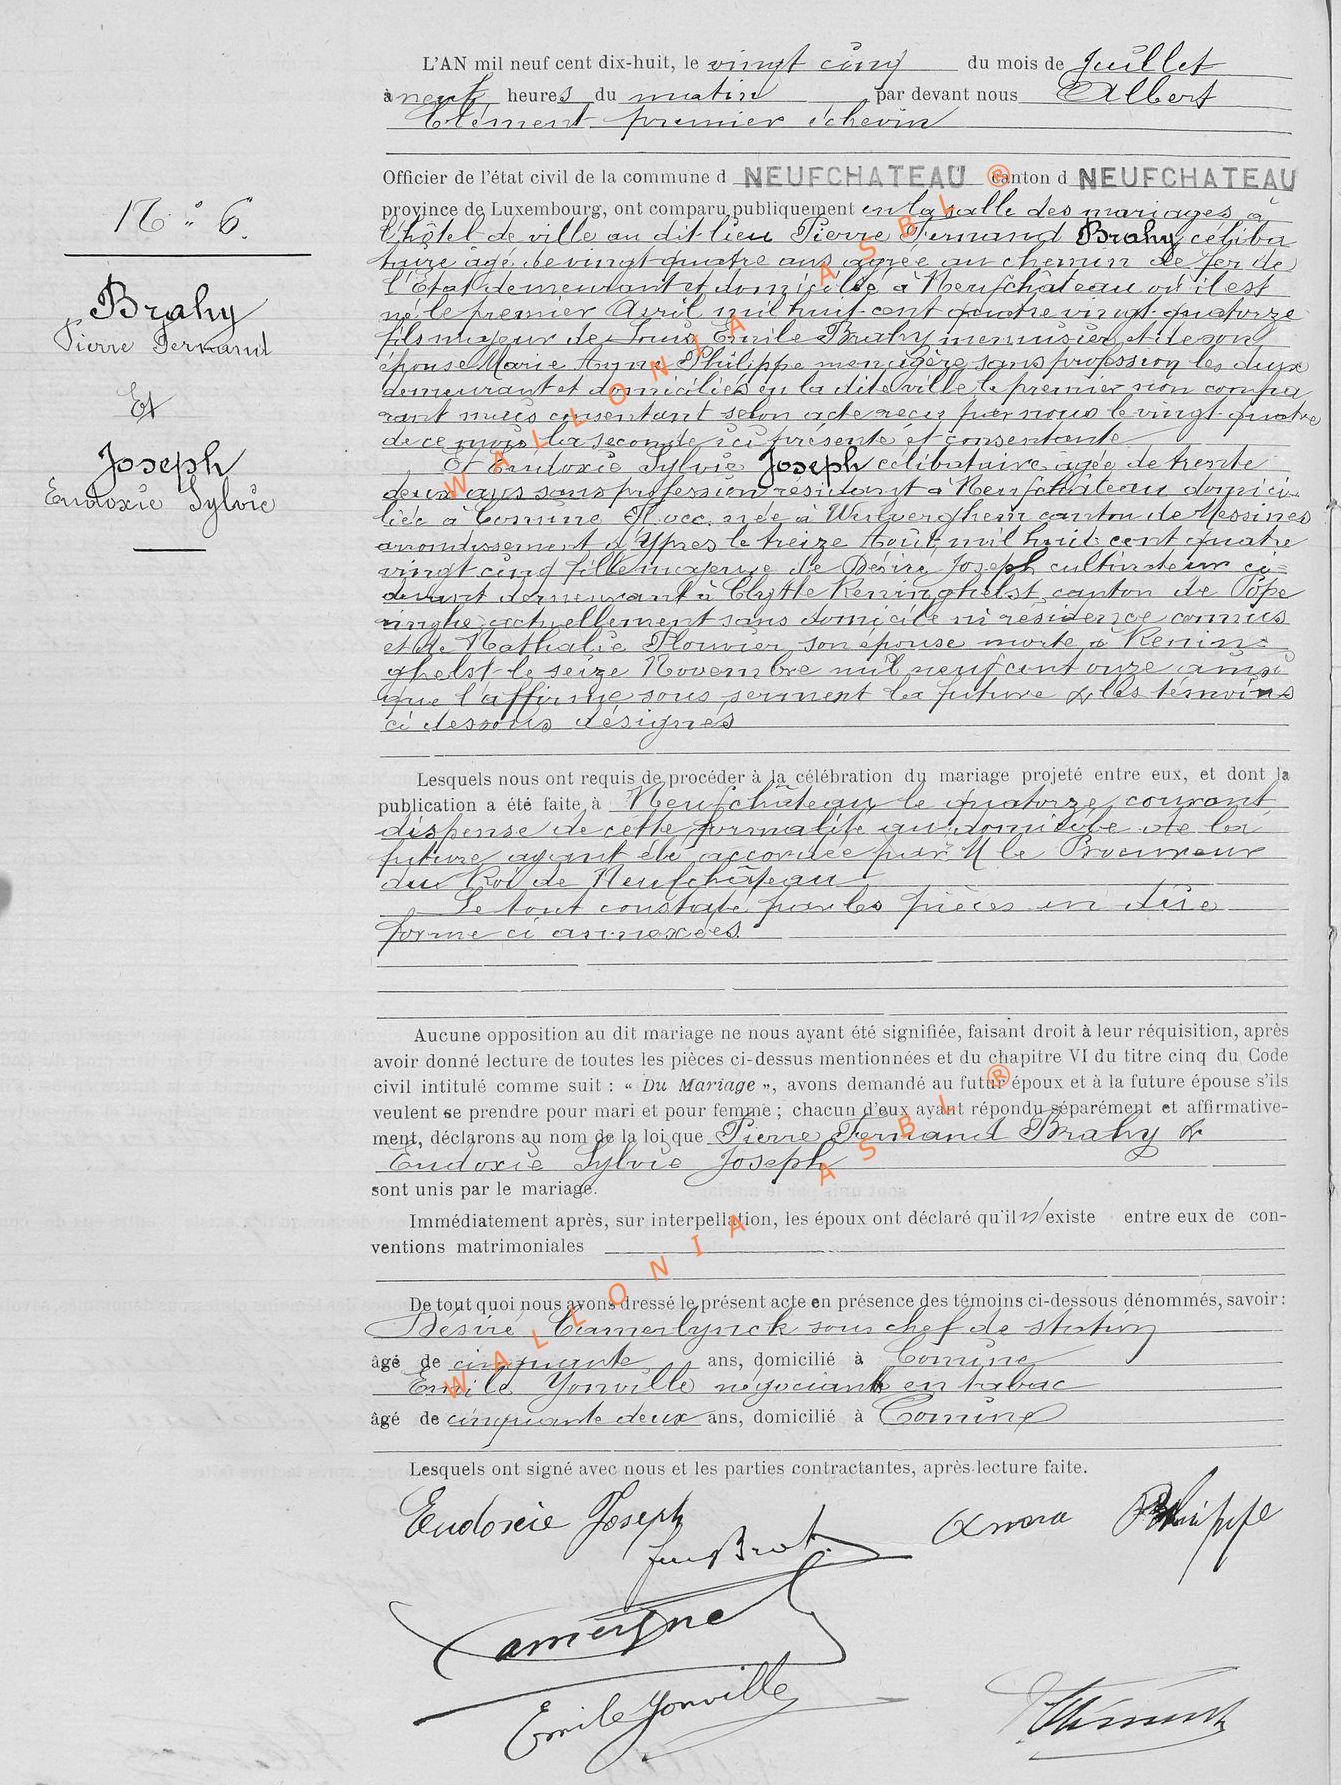 L'AN mil neuf cent dix-huit, le vingt cinq du mois de Juillet
à neuf heures du matin par devant nous Albert
Clément premier échevin
Officier de l'état civil de la commune d NEUFCHATEAU canton d NEUFCHATEAU
province de Luxembourg, ont comparu publiquement en la salle des mariages à
l'hôtel de ville au dit lieu Pierre Fernand Brahy céliba
taire âgé de vingt quatre ans agréé au chemin de fer de
l'Etat demeurant et domicilié à Neufchâteau où il est
né le premier Avril mil huit cent quatre vingt quatorze
fils majeur de Louis Emile Brahy menuisier et de son
épouse Marie Anne Philippe menagère sans profession les deux
demeurant et domiciliés en la dite ville le premier non compa
rant mais consentant selon acte reçu par nous le vingt quatre
de ce mois la seconde ici présente et consentante
Et Eudoxie Sylvie Joseph célibataire agée de trente
deux ans sans profession résidant à Neufchâteau domici
liée à Comine Fl. occ. née à Wulverghem canton de Messines
arrondissement d'Ypres le treize Août mil huit cent quatre
vingt cinq fille majeure de Désiré Joseph cultivateur ci
devant demeurant à Clytte Reninghelst canton de Pope
ringhe actuellement sans domicile ni résidence connus
et de Nathalie Plouvier son épouse morte à Renin
ghelst le seize Novembre mil neuf cent onze ainsi
que l'affirme sous serment la future & les témoins
ci dessous désignés
Lesquels nous ont requis de procéder à la célébration du mariage projeté entre eux, et dont la
publication a été faite à Neufchâteau le quatorze courant
dispense de cette formalité au domicile de la
future ayant été accordée par M le Procureur
du Roi de Neufchâteau
Le tout constaté par les pièces en due
forme ci annexées
Aucune opposition au dit mariage ne nous ayant été signifiée, faisant droit à leur réquisition, après
avoir donné lecture de toutes les pièces ci-dessus mentionnées et du chapitre VI du titre cinq du Code
civil intitulé comme suit : « Du Mariage », avons demandé au futur époux et à la future épouse s'ils
veulent se prendre pour mari et pour femme ; chacun d'eux ayant répondu séparément et affirmative-
ment, déclarons au nom de la loi que Pierre Fernand Brahy &
Eudoxie Sylvie Joseph
sont unis par le mariage.
Immédiatement après, sur interpellation, les époux ont déclaré qu'il n'existe entre eux de con-
ventions matrimoniales
De tout quoi nous avons dressé le présent acte en présence des témoins ci-dessous dénommés, savoir :
Désiré Camerlynck sous chef de station
âgé de cinquante ans, domicilié à Comine
Emile Yonville négociant en tabac
âgé de cinquante deux ans, domicilié à Comine
Lesquels ont signé avec nous et les parties contractantes, après lecture faite.
Eudoxie Joseph
Anna Philippe
Emile Yonville
Clément
N° 6.
Brahy
Pierre Fernand
Et
Joseph
Eudoxie Sylvie
WALLONIA ASBL ®
WALLONIA ASBL ®